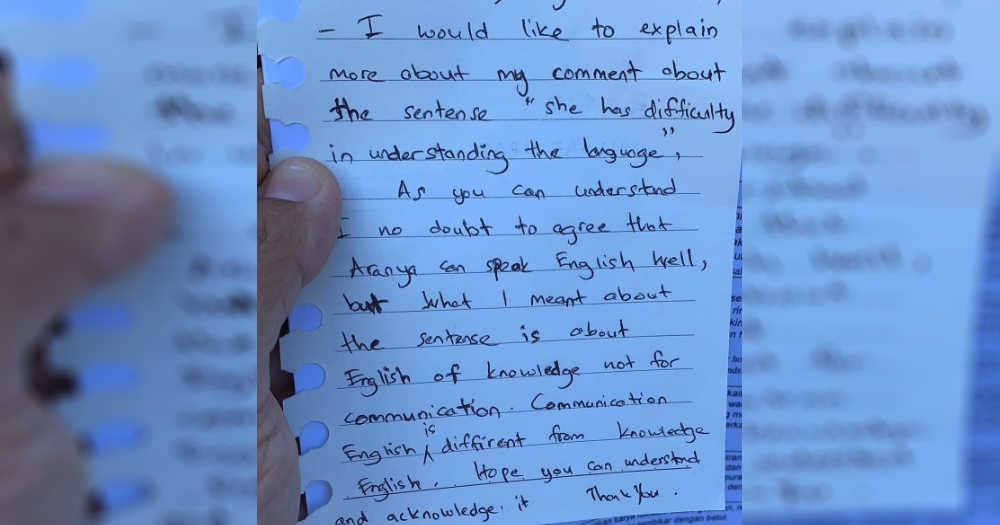 - I would like to explain
more about my comment about
the sentence " she has difficulty
in understanding the language",
As you can understand
I no doubt to agree that
Aranya can speak English well,
but what I meant about
the sentence is about
English of knowledge not for
communication. Communication
English is diffirent from knowledge
English. Hope you can understand
and acknowledge it Thank You.